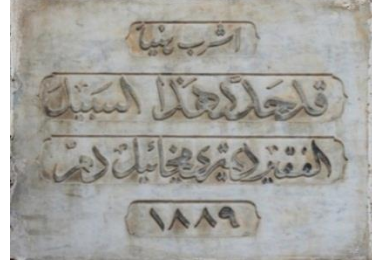 اشرب هنيئاً
قد جدد هذا السبيل
الفقير مخائيل
١٨٨٩